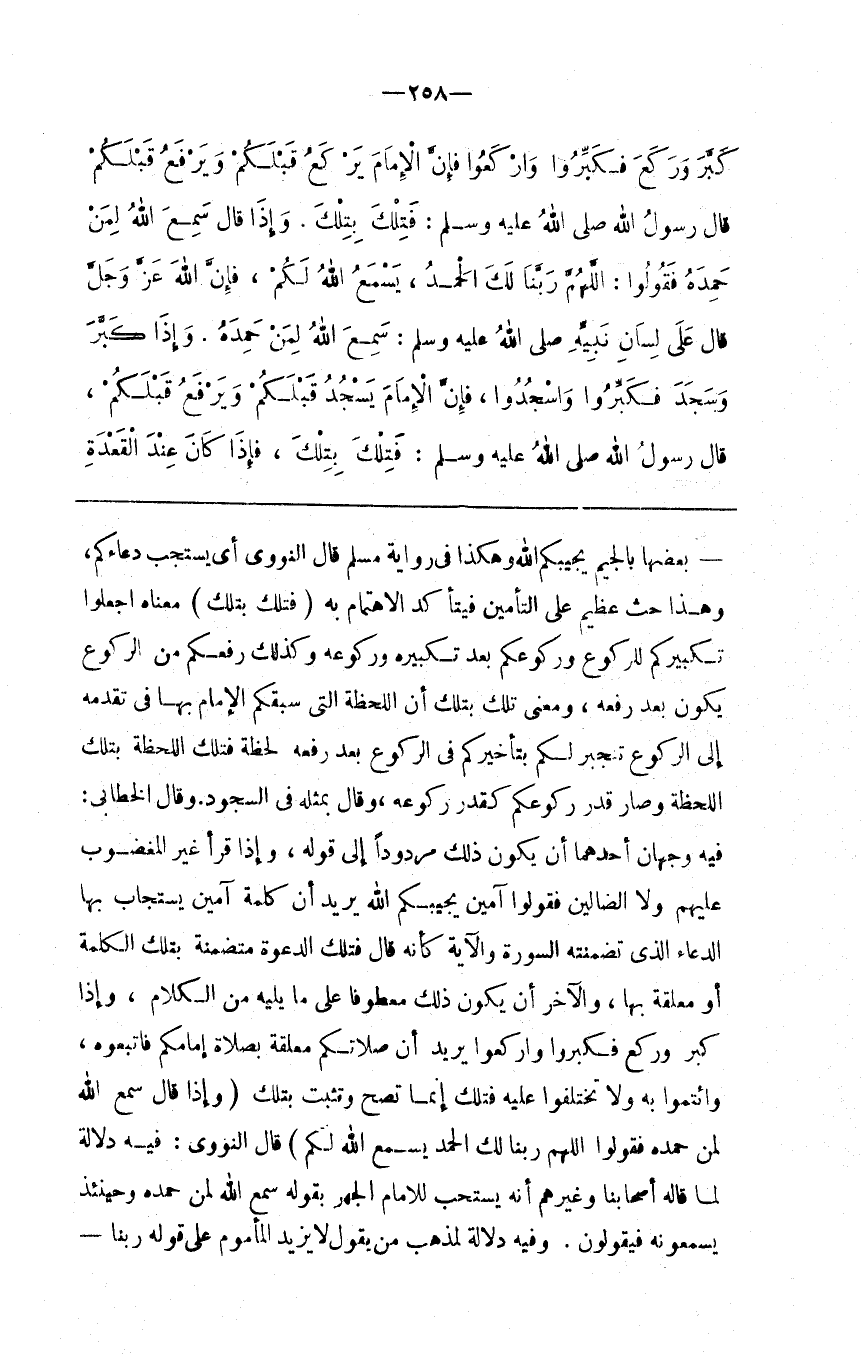 —٢٥٨—
كَبَّرَ وَرَكَعَ فَكَبِّرُوا وَارْكَعُوا فإِنَّ الْإِمَامَ يَرْكَعُ قَبْلَكُمْ وَيَرْفَعُ قَبْلَكُمْ
قال رسولُ الله صلى اللهُ عليه وسلم : فَتِلْكَ بِتِلْكَ . وَإِذَا قال سَمِعَ اللهُ لِمَنْ
حَمِدَهُ فَقُولُوا : اللَّهُمَّ رَبَّنَا لَكَ الْحَمْدُ ، يَسْمَعُ اللهُ لَكُمْ ، فإِنَّ اللهَ عَزَّ وَجَلَّ
قال عَلَى لِسَانِ نَبِيِّهِ صلى اللهُ عليه وسلم : سَمِعَ اللهُ لِمَنْ حَمِدَهُ . وَإِذَا كَبَّرَ
وَسَجَدَ فَكَبِّرُوا وَاسْجُدُوا ، فإِنَّ الْإِمَامَ يَسْجُدُ قَبْلَكُمْ وَيَرْفَعُ قَبْلَكُمْ ،
قال رسولُ الله صلى اللهُ عليه وسلم : فَتِلْكَ بِتِلْكَ ، فإِذَا كَانَ عِنْدَ الْقَعْدَةِ
— بعضها بالجيم يجيبكم الله وهكذا فى رواية مسلم قال النووى أى يستجب دعاءكم،
وهذا حث عظيم على التأمين فيتأكد الاهتمام به ( فتلك بتلك ) معناه اجعلوا
تكبيركم للركوع وركوعكم بعد تكبيره وركوعه وكذلك رفعكم من الركوع
يكون بعد رفعه ، ومعنى تلك بتلك أن اللحظة التى سبقكم الإمام بها فى تقدمه
إلى الركوع تنجبر لكم بتأخيركم فى الركوع بعد رفعه لحظة فتلك اللحظة بتلك
اللحظة وصار قدر ركوعكم كقدر ركوعه ،وقال بمثله فى السجود.وقال الخطابى:
فيه وجهان أحدهما أن يكون ذلك مردوداً إلى قوله ، وإذا قرأ غير المغضوب
عليهم ولا الضالين فقولوا آمين يجيبكم الله يريد أن كلمة آمين يستجاب بها
الدعاء الذى تضمنته السورة والآية كأنه قال فتلك الدعوة متضمنة بتلك الكلمة
أو معلقة بها ، والآخر أن يكون ذلك معطوفا على ما يليه من الكلام ، وإذا
كبر وركع فكبروا واركعوا يريد أن صلاتكم معلقة بصلاة إمامكم فاتبعوه ،
وائتموا به ولا تختلفوا عليه فتلك إنما تصح وتثبت بتلك ( وإذا قال سمع الله
لمن حمده فقولوا اللهم ربنا لك الحمد يسمع الله لكم ) قال النووى : فيه دلالة
لما قاله أصحابنا وغيرهم أنه يستحب للامام الجهر بقوله سمع الله لمن حمده وحينئذ
يسمعونه فيقولون . وفيه دلالة لمذهب من يقول لا يزيد المأموم على قوله ربنا —